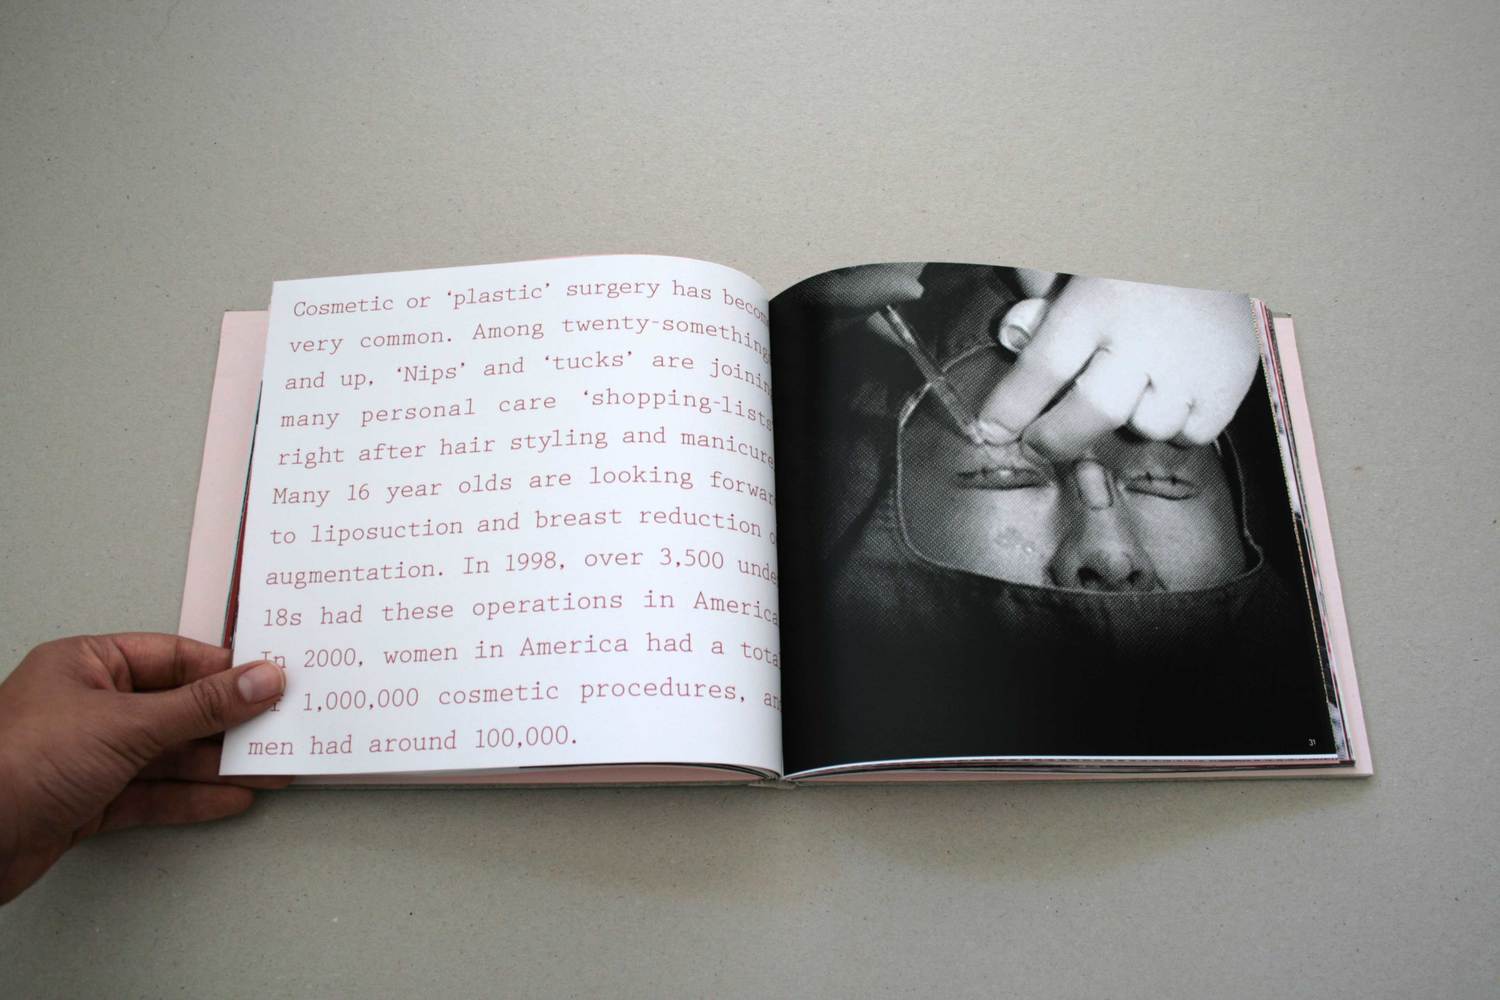 Cosmetic or ‘plastic’ surgery has becom
very common. Among twenty-something
and up, ‘Nips’ and ‘tucks’ are joinin
many personal care ‘shopping-lists’
right after hair styling and manicure
Many 16 year olds are looking forwar
to liposuction and breast reduction o
augmentation. In 1998, over 3,500 unde
18s had these operations in America
In 2000, women in America had a tota
1,000,000 cosmetic procedures, an
men had around 100,000.
31